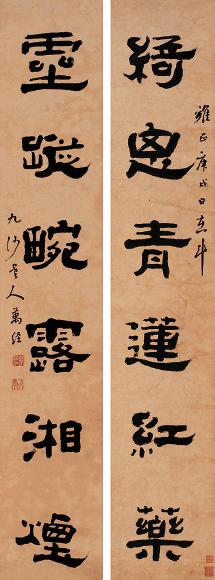 雍正庚戌日在斗
綺思青蓮紅藥
靈蹤畹露湘煙
九沙老人萬經